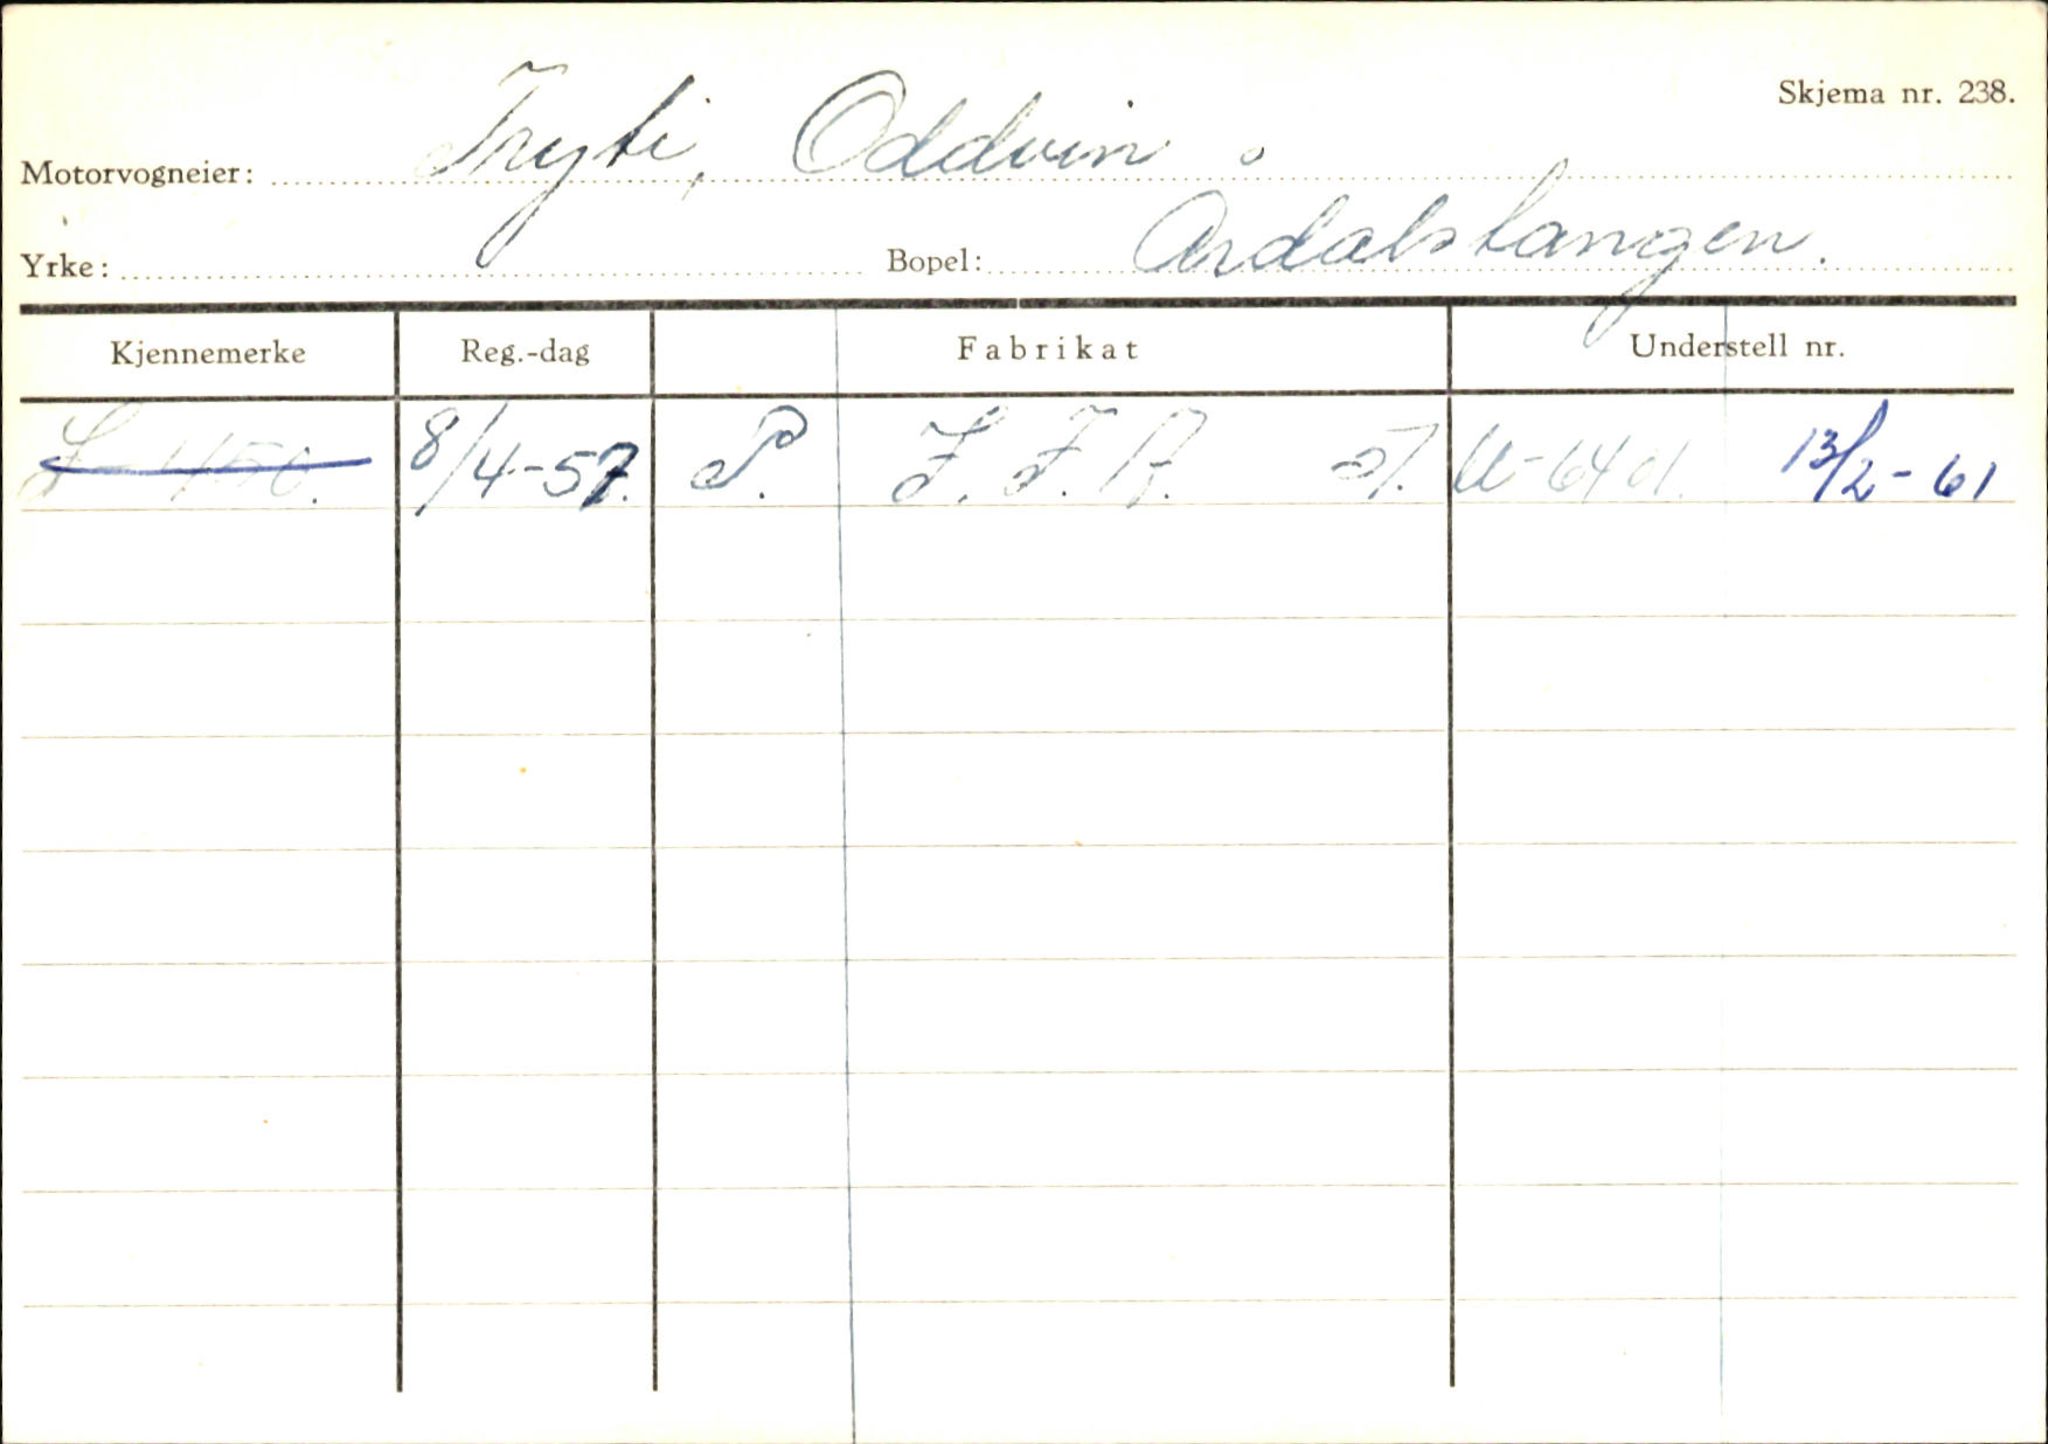 Skjema nr. 238.
Motorvogneier: Tryti, Oddvin
Yrke: Bopel: Årdalstangen.
Kjennemerke Reg.-dag Fabrikat Understell nr.
8/4-57. P. 13/2-61